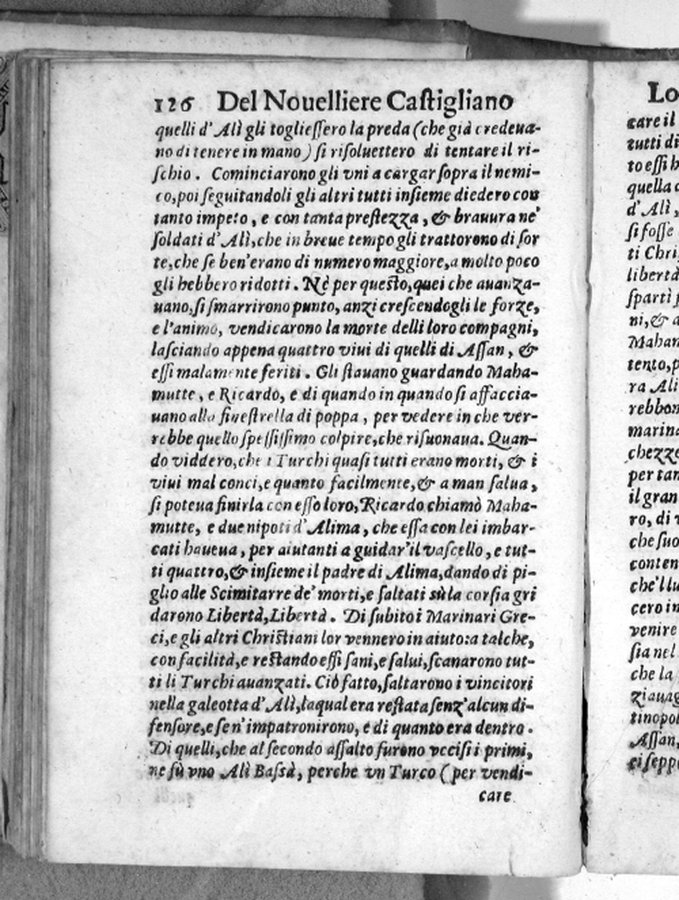 126 Del Nouelliere Castigliano
quelli d'Alì gli togliessero la preda (che già credeua-
no di tenere in mano) si risoluettero di tentare il ri-
schio. Cominciarono gli vni a cargar sopra il nemi-
co, poi seguitandoli gli altri tutti insieme diedero con
tanto impeto, e con tanta prestezza, & brauura ne'
soldati d'Alì, che in breue tempo gli trattorono di sor
te, che se ben'erano di numero maggiore, a molto poco
gli hebbero ridotti. Nè per questo, quei che auanza-
uano, si smarrirono punto, anzi crescendogli le forze,
e l'animo, vendicarono la morte delli loro compagni,
lasciando appena quattro viui di quelli di Assan, &
essi malamente feriti. Gli stauano guardando Maha-
mutte, e Ricardo, e di quando in quando si affaccia-
uano alla finestrella di poppa, per vedere in che ver-
rebbe quello spessissimo colpire, che risuonaua. Quan-
do viddero, che i Turchi quasi tutti erano morti, & i
viui mal conci, e quanto facilmente, & a man salua,
si poteua finirla con esso loro, Ricardo chiamò Maha-
mutte, e due nipoti d'Alima, che essa con lei imbar-
cati haueua, per aiutanti a guidar'il vascello, e tut-
ti quattro, & insieme il padre di Alima, dando di pi-
glio alle Scimitarre de' morti, e saltati sù la corsia gri
darono Libertà, Libertà. Di subito i Marinari Gre-
ci, e gli altri Christiani lor vennero in aiuto: a talche,
con facilità, e restando essi sani, e salui, scanarono tut-
ti li Turchi auanzati. Ciò fatto, saltarono i vincitori
nella galeotta d'Alì, laqual era restata senz'alcun di-
fensore, e se n'impatronirono, e di quanto era dentro.
Di quelli, che al secondo assalto furono vccisi i primi,
ne fù vno Alì Bassà, perche vn Turco (per vendi-
care
Lo
care il
tutti di
to essi h
quella
d'Alì,
si fosse
ti Chri
libertà
spartì
ni, & a
Mahan
tento, p
ra Ali
rebbon
marina
chezze
per tan
il gran
ro, di
che suo
conten
che'l lu
cero in
venire
sia nel
che la
ziauag
tinopol
Assan,
ci sepp